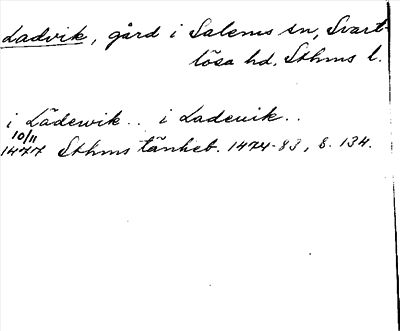 Ladvik, gård i Salems sn, Svart-
lösa hd, Sthms l.
i Lädewik .. i Ladeuik ..
10/11
1477 Sthms tänkeb. 1474-83, s. 134.